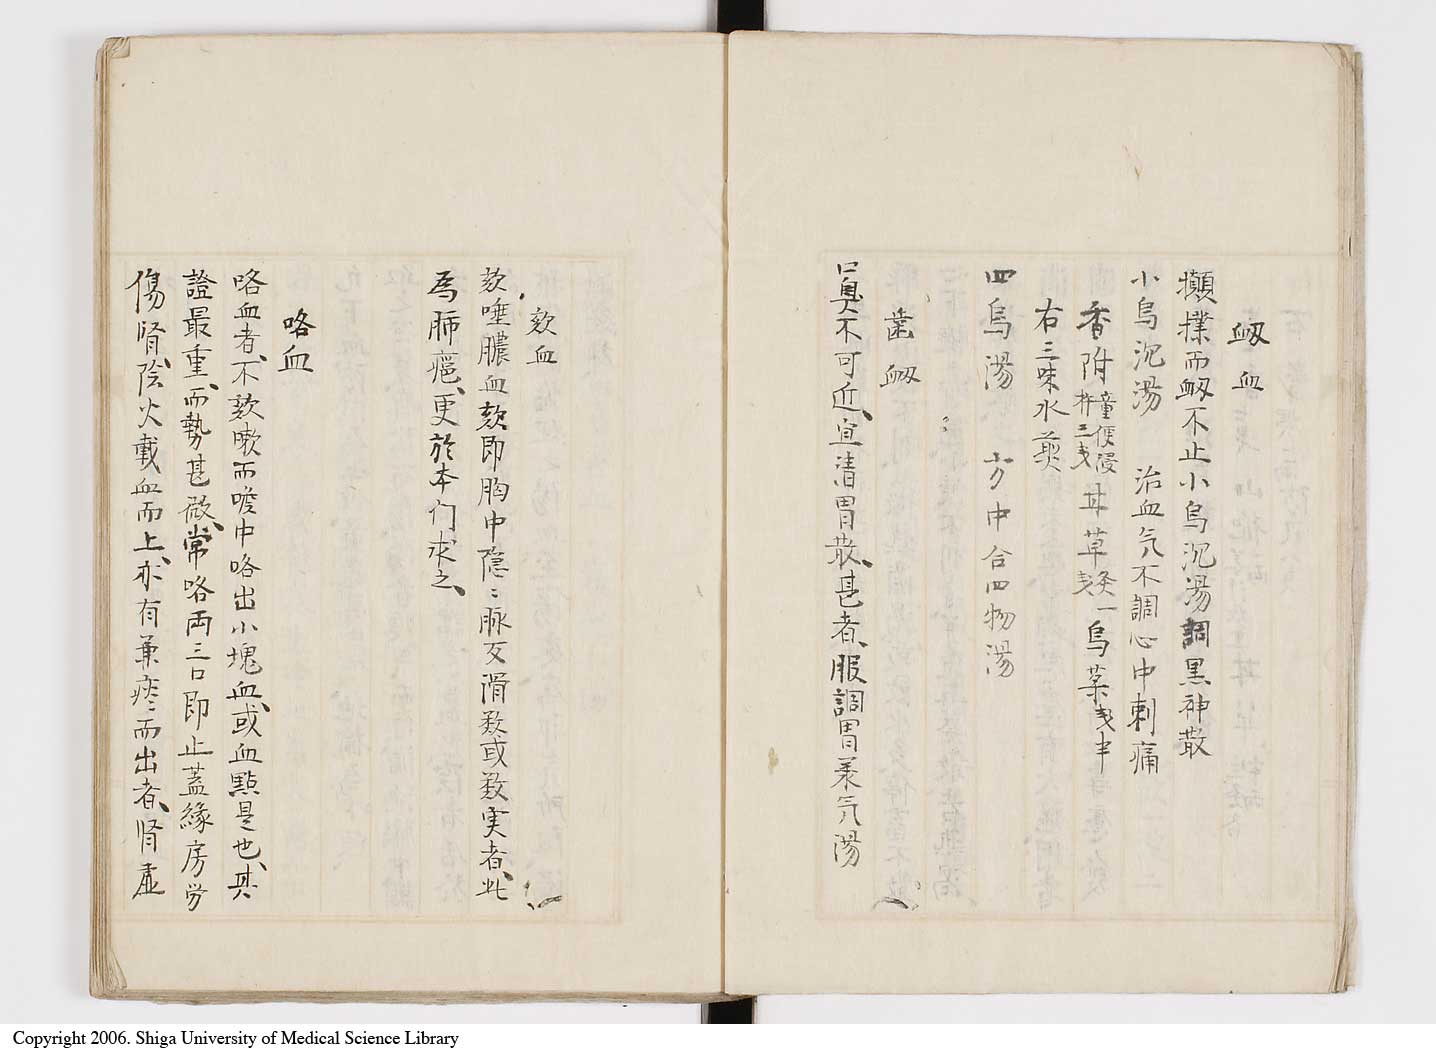 衂血
攧撲而衂不止小烏沉湯調黒神散
小烏沉湯　治血气不調心中刺痛
香附童便浸杵三戋甘草灸一戋烏薬戋半
右三味水煎
四烏湯　方中合四物湯
歯衂
口臭不可近宜清胃散甚者服調胃承气湯
欬血
欬唾膿血欬即胸中隠〻脉反滑数或数実者此
為肺癰更於本门求之
咯血
咯血者不欬嗽而喉中咯出小塊血或血點是也其
證最重而勢甚微常咯両三口即止蓋縁房労
傷腎陰火載血而上亦有兼痰而出者腎虚
Copyright 2006. Shiga University of Medical Science Library